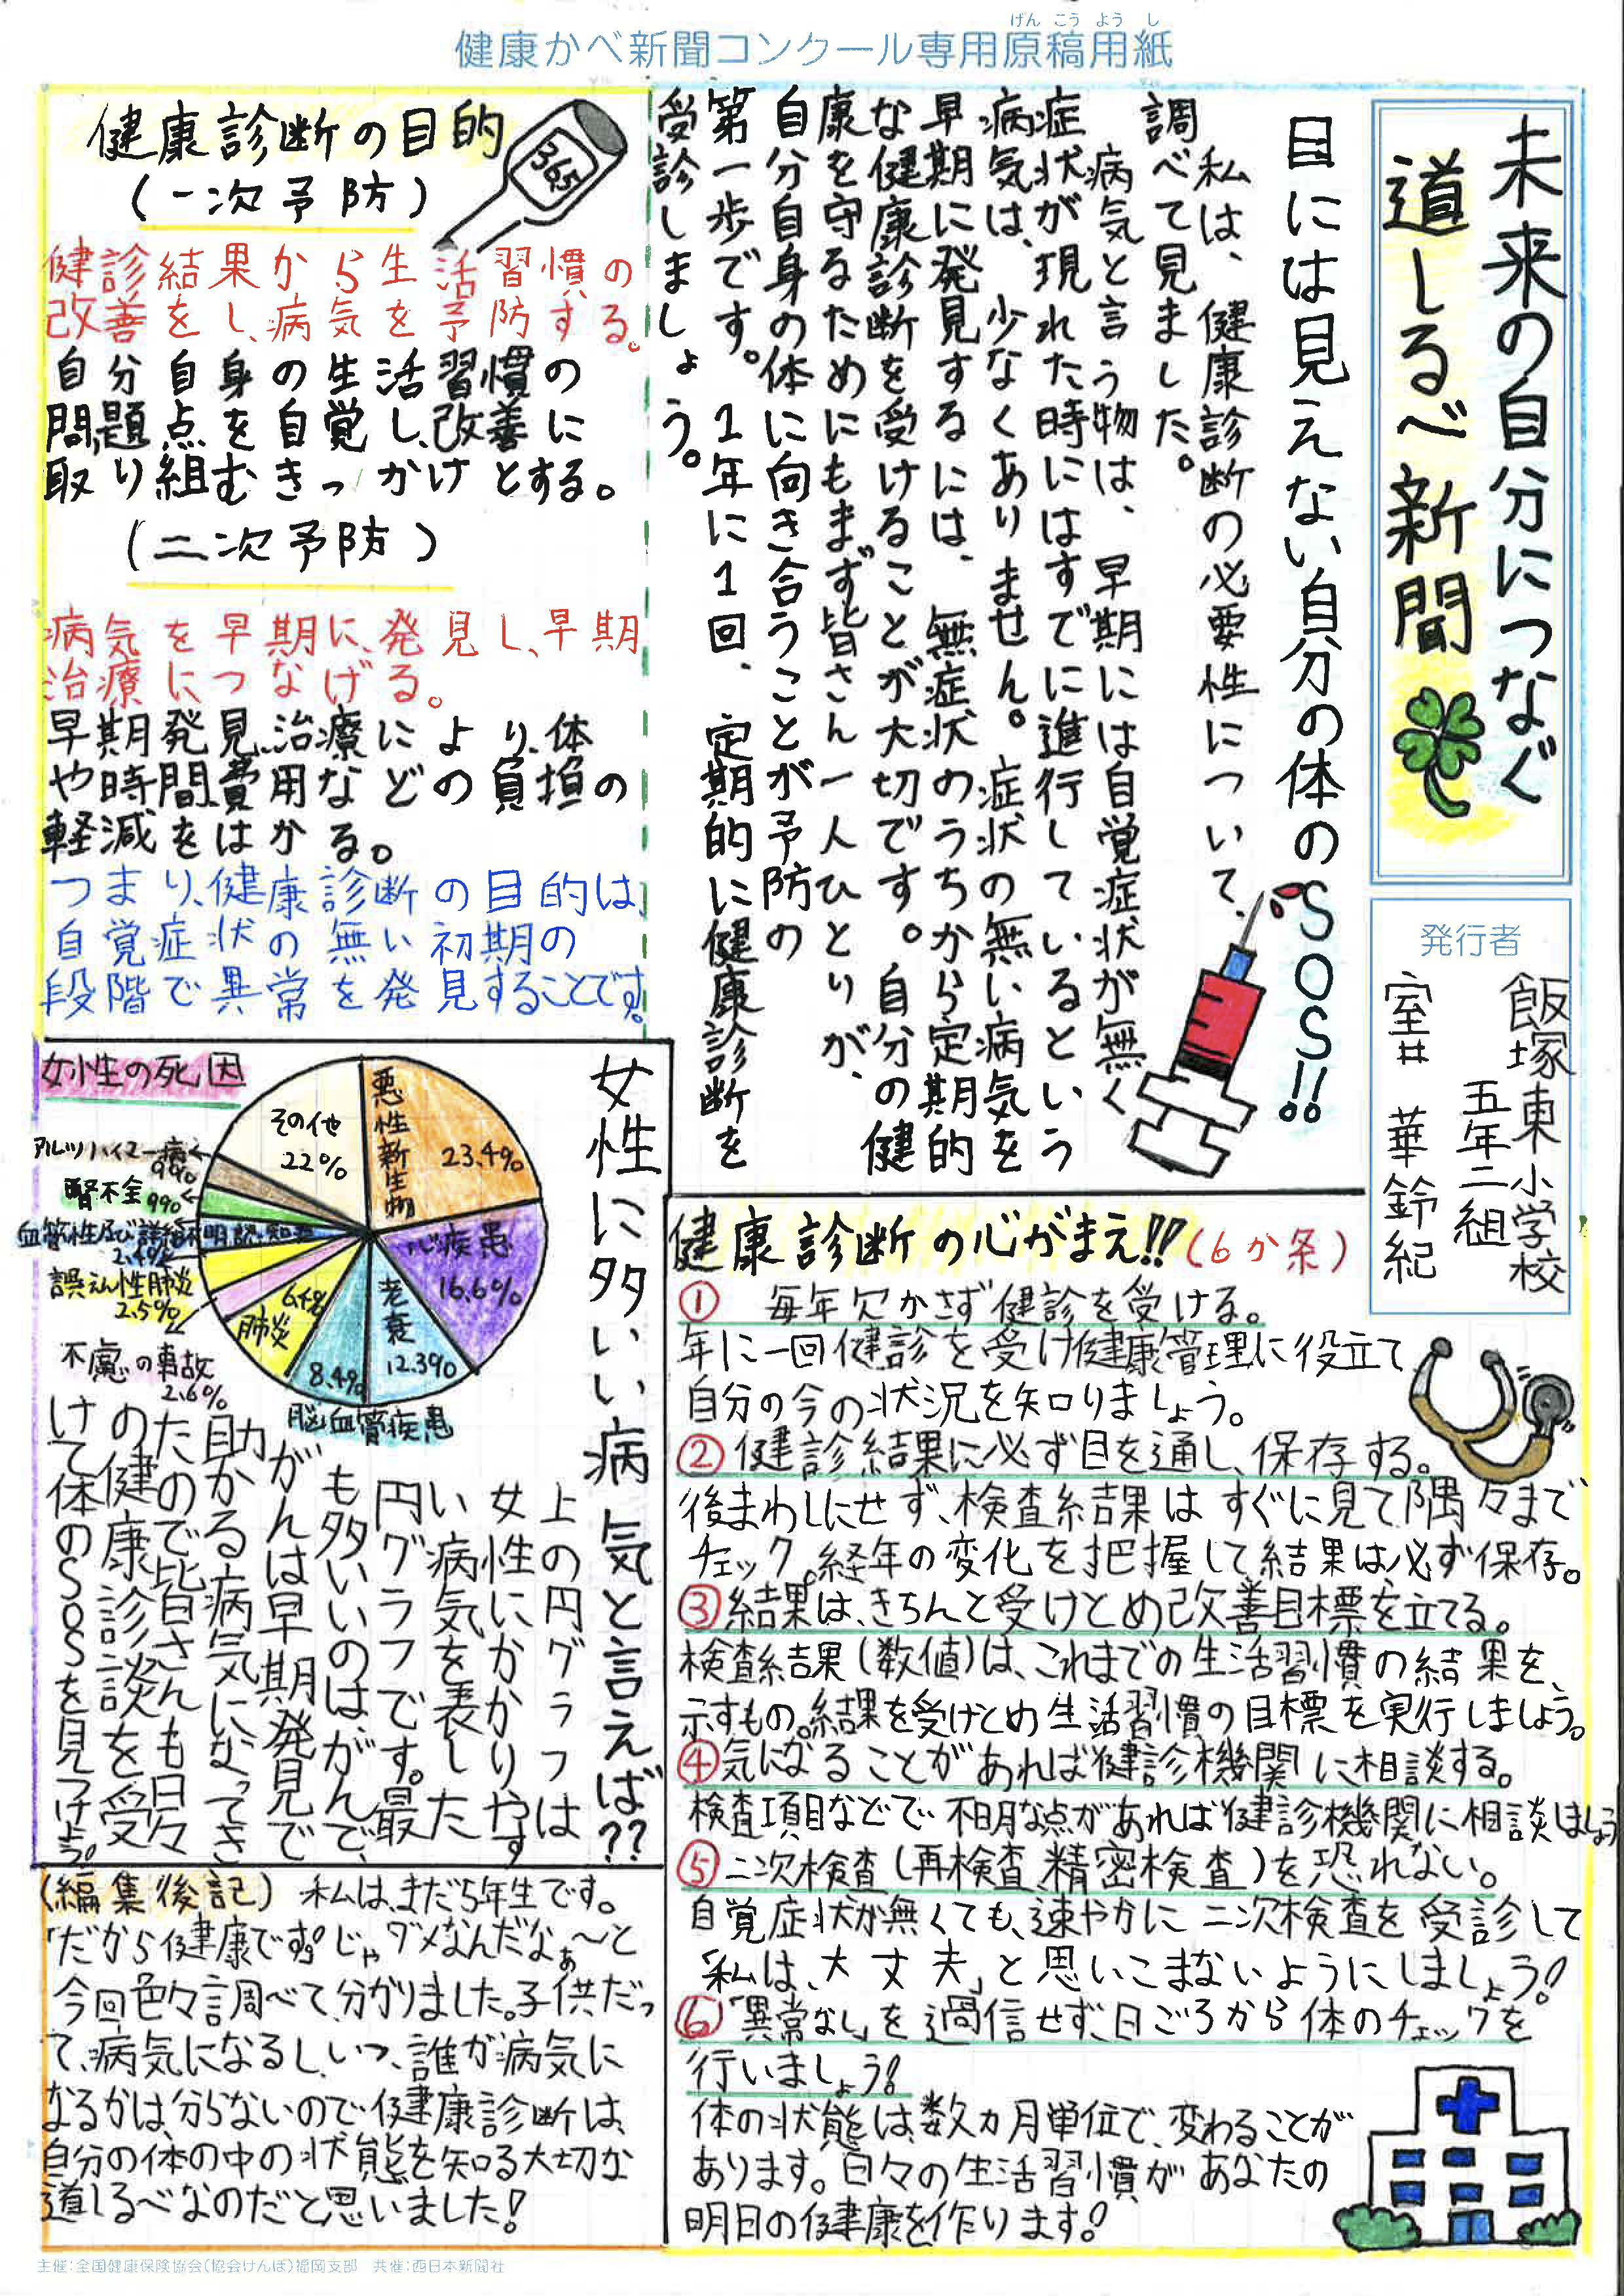 げんこうようし
健康かべ新聞コンクール専用原稿用紙
未来の自分につなぐ
道しるべ新聞
発行者
飯塚東小学校
五年二組
室井 華鈴紀
目には見えない自分の体のSOS!!
私は、健康診断の必要性について、
調べて見ました。
病気と言う物は、早期には自覚症状が無く
症状が現れた時にはすでに進行しているという
病気は、少なくありません。症状の無い病気を
早期に発見するには、無症状のうちから定期的
な健康診断を受けることが大切です。自分の健
康を守るためにもまず皆さん一人ひとりが、
自分自身の体に向き合うことが予防の
第一歩です。1年に1回、定期的に健康診断を
受診しましょう。
健康診断の目的
36.5
(一次予防)
健診結果から生活習慣の
改善をし、病気を予防する。
自分自身の生活習慣の
問題点を自覚し、改善に
取り組むきっかけとする。
(二次予防)
病気を早期に、発見し、早期
治療につなげる。
早期発見、治療により、体
や時間、費用などの負担の
軽減をはかる。
つまり、健康診断の目的は、
自覚症状の無い初期の
段階で異常を発見することです。
女性に多いい病気と言えば??
女性の死因
悪性新生物
23.4%
心疾患
16.6%
老衰
12.3%
8.4%
脳血管疾患
6.4%
肺炎
不慮の事故
2.6%
誤えん性肺炎
2.5%
血管性及び詳細不明認知症
2.4%
腎不全
アルツハイマー病
その他
22%
上の円グラフは
女性にかかりやす
い病気を表した
円グラフです。最
も多いいのはがんで、
がんは早期発見で
助かる病気になってき
たので皆さんも日々
の健康診談を受
けて体のSOSを見つけよう。
健康診断の心がまえ!!(6か条)
① 毎年欠かさず健診を受ける。
年に一回健診を受け健康管理に役立て
自分の今の状況を知りましょう。
② 健診結果に必ず目を通し、保存する。
後まわしにせず、検査結果はすぐに見て隅々まで
チェック。経年の変化を把握して結果は必ず保存。
③ 結果は、きちんと受けとめ改善目標を立てる。
検査結果(数値)は、これまでの生活習慣の結果を、
示すもの。結果を受けとめ生活習慣の目標を実行しましょう。
④ 気になることがあれば健診機関に相談する。
検査項目などで不明な点があれば健診機関に相談はしよう
⑤ 二次検査(再検査、精密検査)を恐れない。
自覚症状が無くても、速やかに二次検査を受診して
「私は、大丈夫」と思いこまないようにしましょう!
⑥ 「異常なし」を過信せず、日ごろから体のチェックを
行いましょう!
体の状態は、数ヵ月単位で、変わることが
あります。日々の生活習慣があなたの
明日の健康を作ります!
(編集後記) 私は、まだ5年生です。
「だから健康です。」じゃダメなんだなぁ〜と
今回色々調べて、分かりました。子供だっ
て、病気になるし、いつ、誰が病気に
なるかは、分らないので健康診断は、
自分の体の中の状態を知る大切な
道しるべなのだと思いました!
主催:全国健康保険協会(協会けんぽ)福岡支部 共催:西日本新聞社